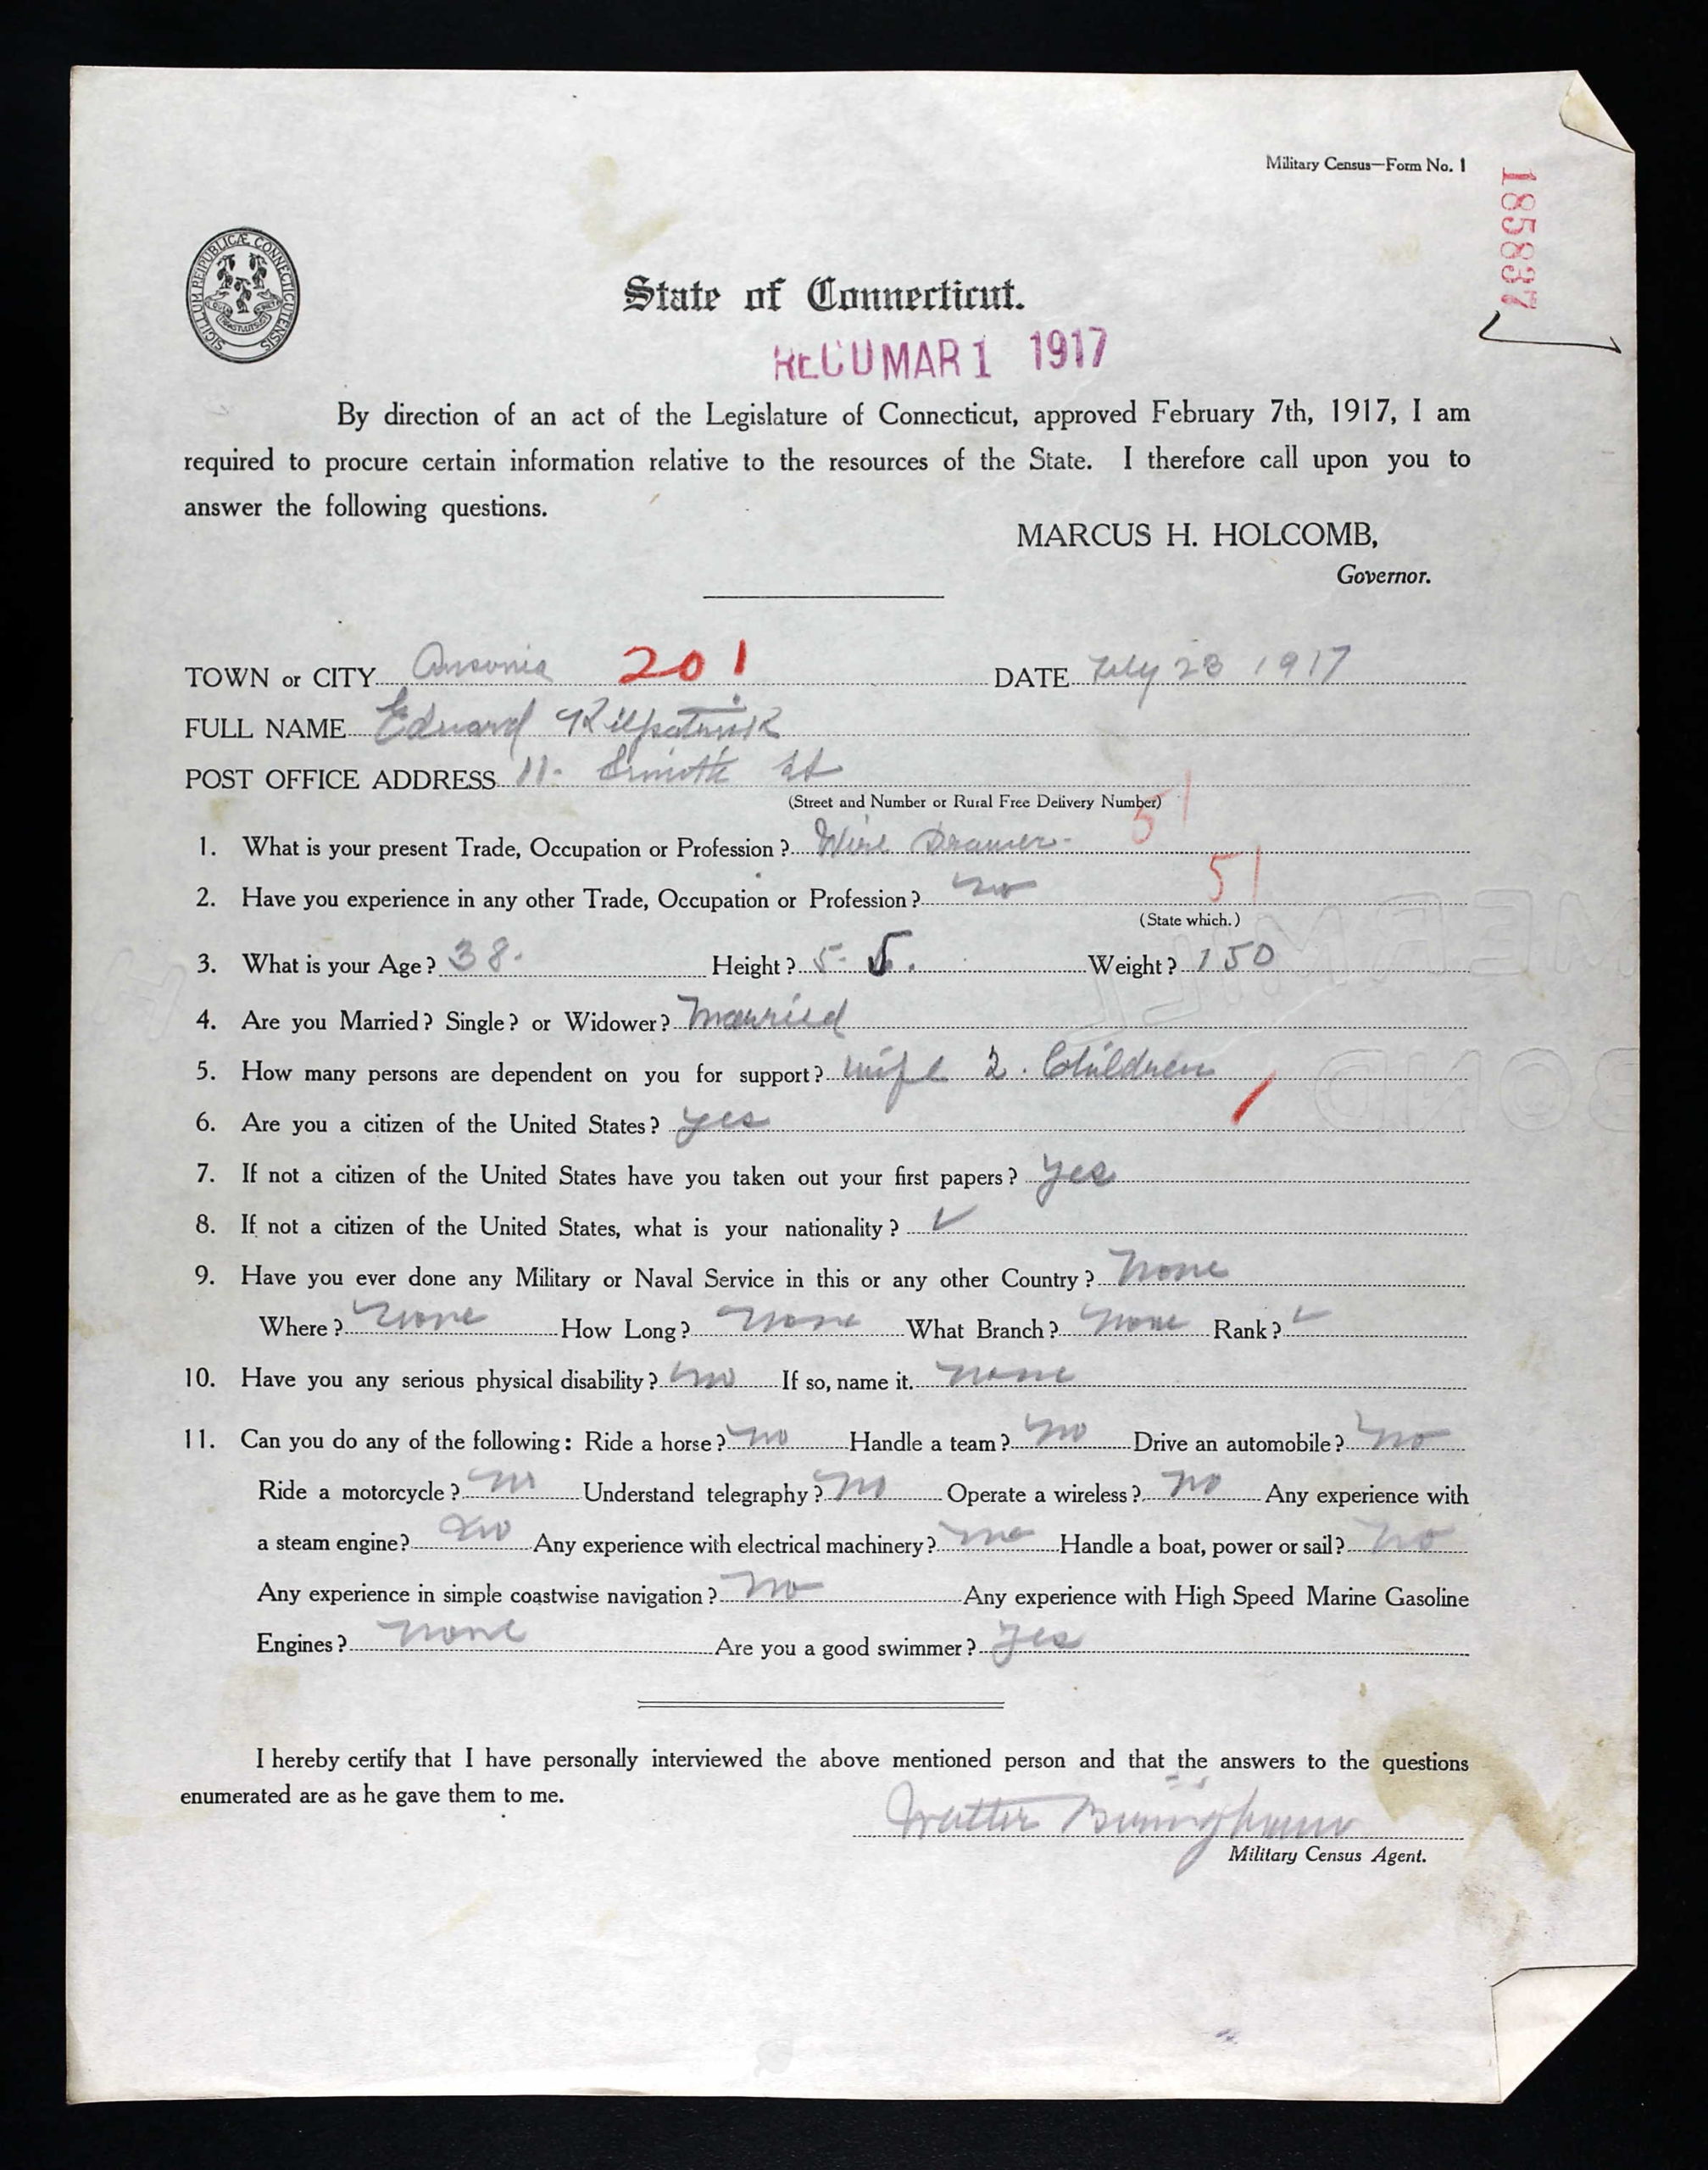 Military Census—Form No. 1
185897
SIGILLUM REIPUBLICÆ CONNECTICUTENSIS
State of Connecticut.
REC'D MAR 1 1917
By direction of an act of the Legislature of Connecticut, approved February 7th, 1917, I am
required to procure certain information relative to the resources of the State. I therefore call upon you to
answer the following questions.
MARCUS H. HOLCOMB,
Governor.
TOWN or CITY Ansonia 201 DATE Feby 23 1917
FULL NAME Edward Kilpatrick
POST OFFICE ADDRESS 11- St
(Street and Number or Rural Free Delivery Number)
51
1. What is your present Trade, Occupation or Profession? Wire Drawer-
2. Have you experience in any other Trade, Occupation or Profession? no 51
(State which.)
3. What is your Age? 38. Height? 5- 5. Weight? 150
4. Are you Married? Single? or Widower? Married
5. How many persons are dependent on you for support? wife 2. Children
6. Are you a citizen of the United States? yes
7. If not a citizen of the United States have you taken out your first papers? yes
8. If not a citizen of the United States, what is your nationality? ✓
9. Have you ever done any Military or Naval Service in this or any other Country? none
Where? none How Long? none What Branch? none Rank? ✓
10. Have you any serious physical disability? no If so, name it. none
11. Can you do any of the following: Ride a horse? no Handle a team? no Drive an automobile? no
Ride a motorcycle? no Understand telegraphy? no Operate a wireless? no Any experience with
a steam engine? no Any experience with electrical machinery? no Handle a boat, power or sail? no
Any experience in simple coastwise navigation? no Any experience with High Speed Marine Gasoline
Engines? none Are you a good swimmer? yes
I hereby certify that I have personally interviewed the above mentioned person and that the answers to the questions
enumerated are as he gave them to me.
Walter
Military Census Agent.